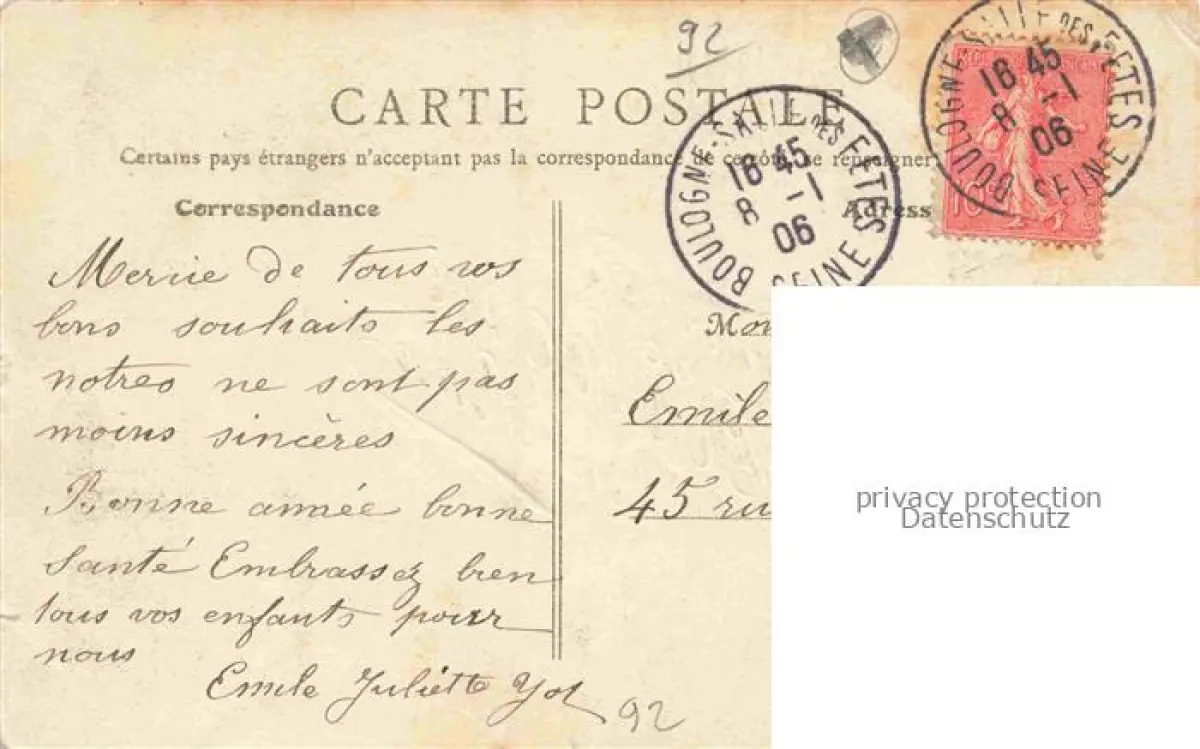 92
CARTE POSTALE
Certains pays étrangers n'acceptant pas la correspondance de ce côté, se renseigner
Correspondance
Adress
BOULOGNE-SALLE DES FETES
16 45
8 -1
06
SEINE
BOULOGNE-SALLE DES FETES
16 45
8 -1
06
SEINE
10
Mercie de tous vos
bons souhaits les
notres ne sont pas
moins sincères
Bonne année bonne
santé Embrassez bien
tous vos enfants pour
nous
Emile Juliette
92
Emile
45 ru
privacy protection
Datenschutz